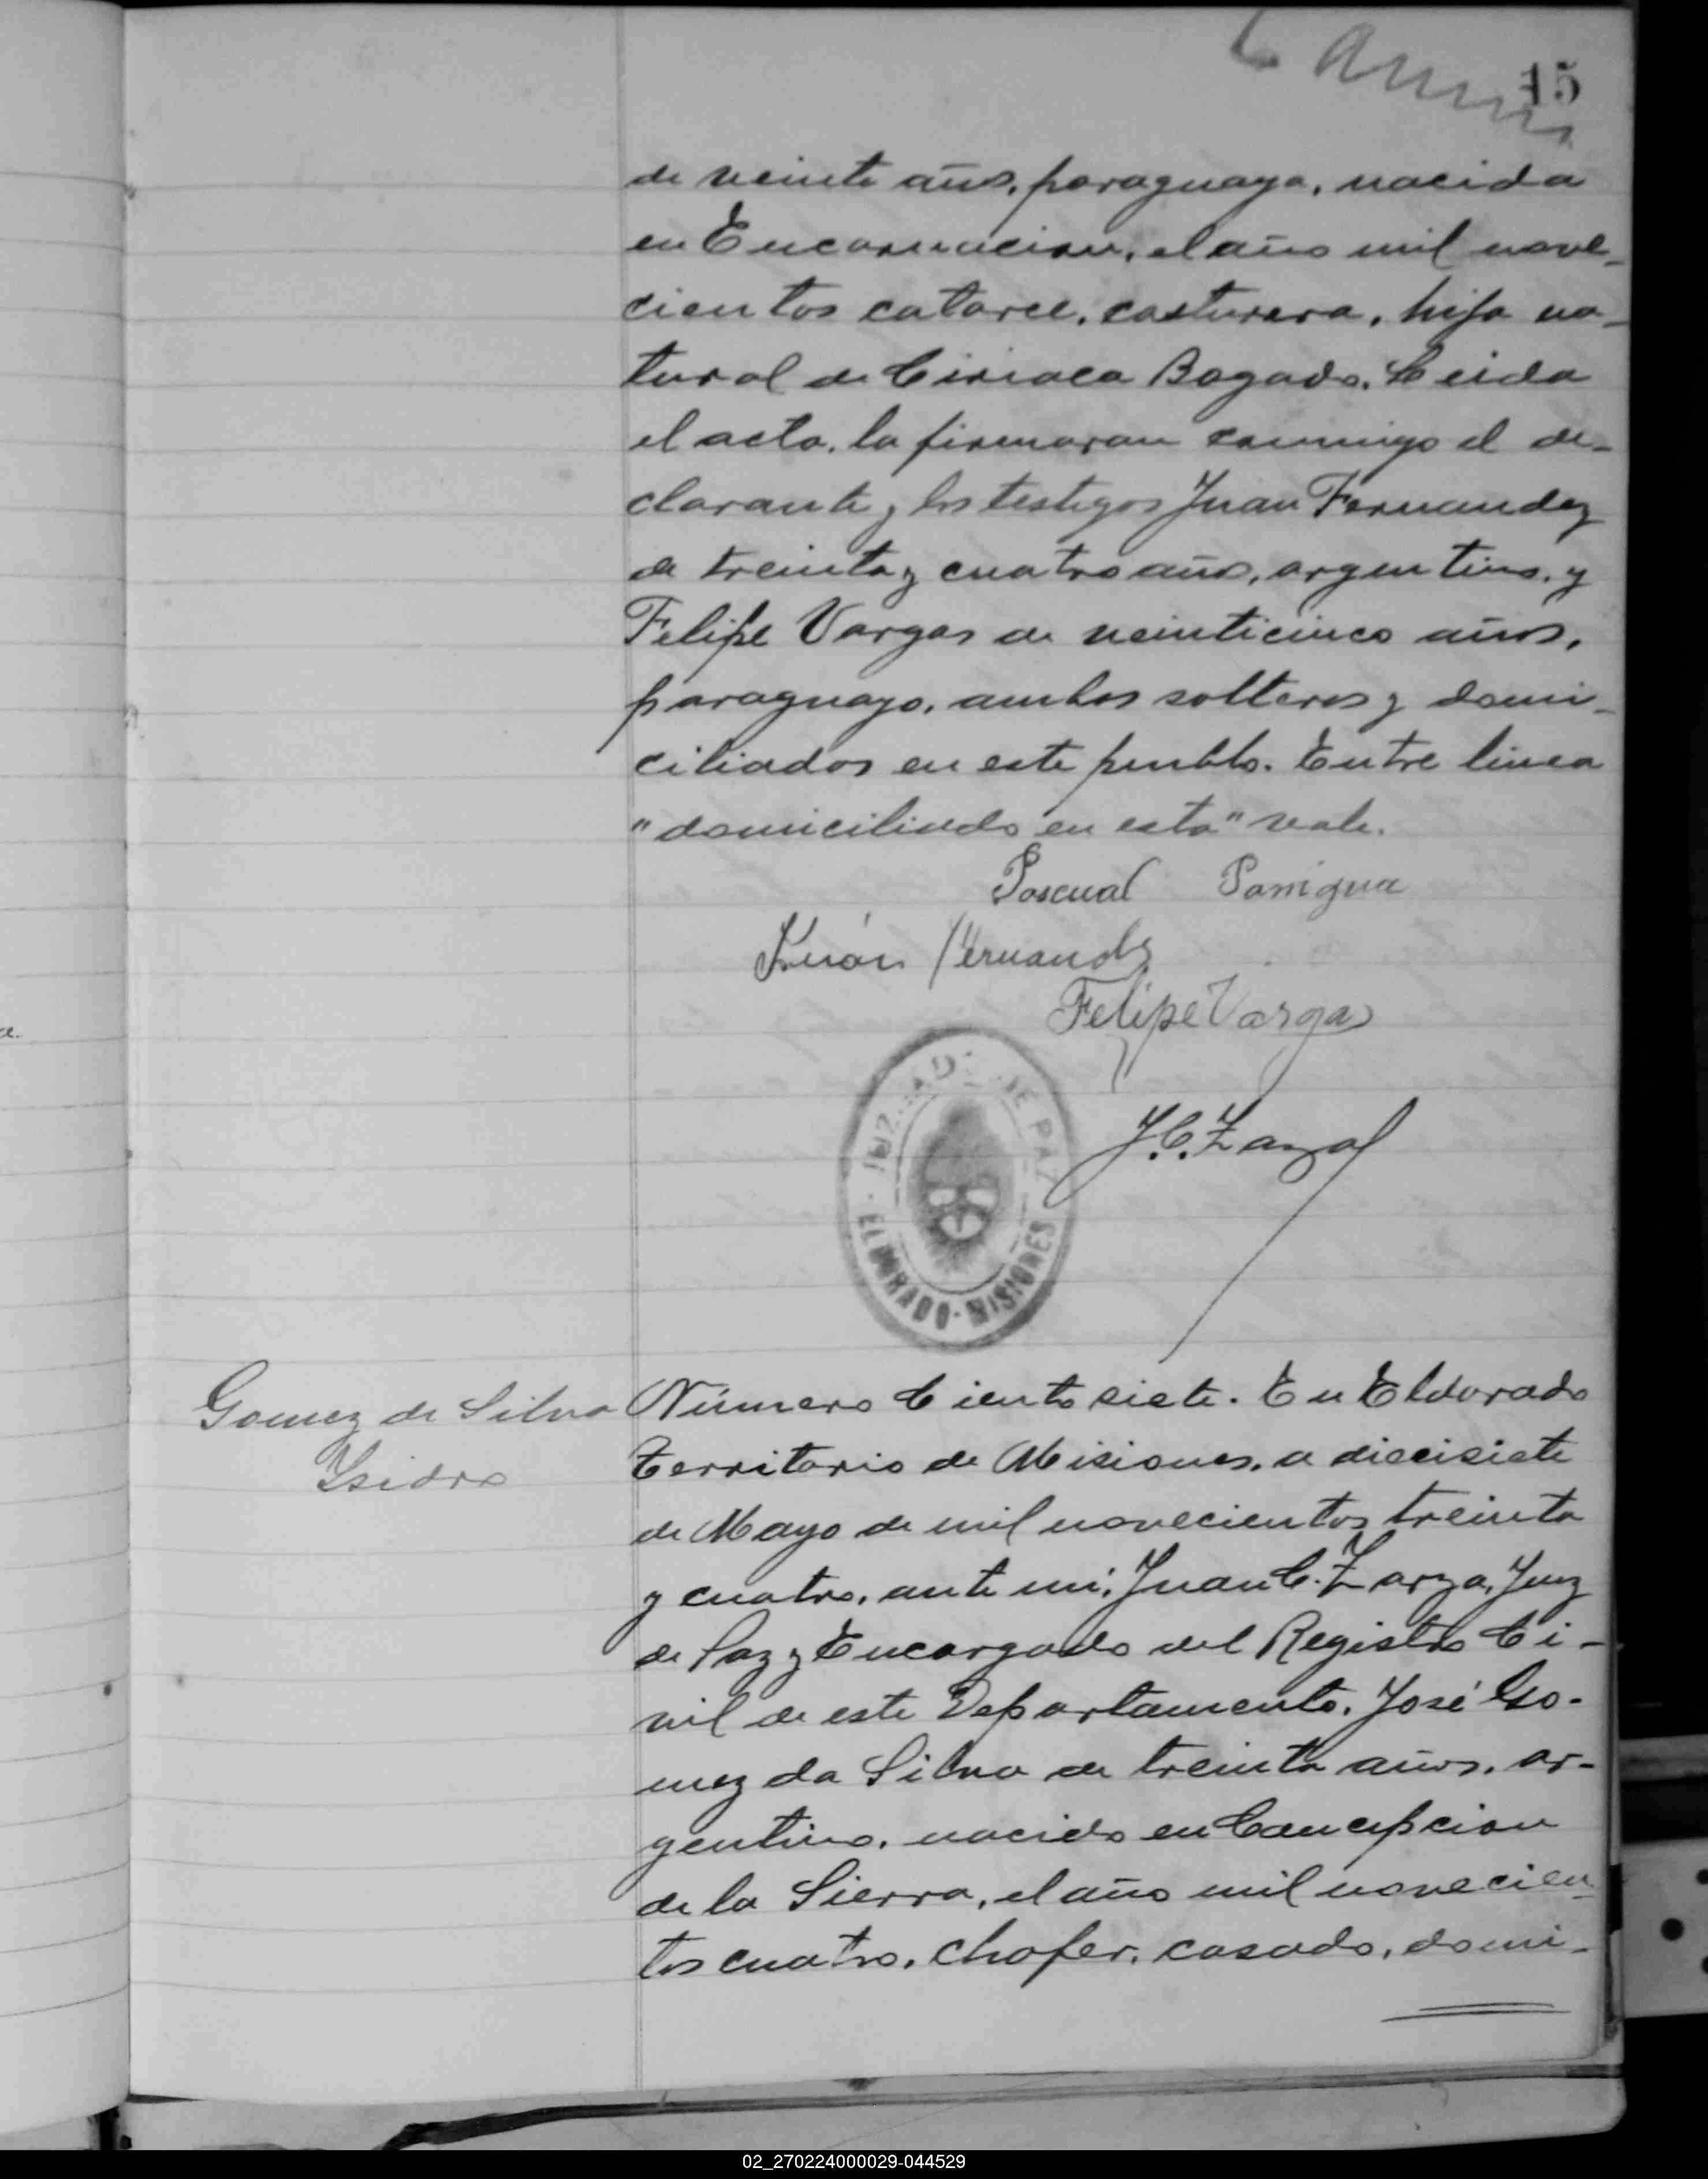 15
de veinte años, paraguaya, nacida
en Encarnacion, el año mil nove-
cientos catorce, costurera, hija na-
tural de Ciriaca Bogado. Leida
el acta, la firmaran conmigo el de-
clarante y los testigos Juan Fernandez
de treinta y cuatro años, argentino, y
Felipe Vargas de veinticinco años,
paraguayo, ambos solteros y domi-
ciliados en este pueblo. Entre linea
"domiciliado en esta" vale.
Pascual Panigua
Juán Fernandz
Felipe Vargas
JUZGADO DE PAZ
ELDORADO-MISIONES
J.C. Zarza
Gomez de Silva
Isidro
Número Ciento siete. En Eldorado
Territorio de Misiones, a diecisiete
de Mayo de mil novecientos treinta
y cuatro, ante mi, Juan C. Zarza, Juez
de Paz y Encargado del Registro Ci-
vil de este Departamento, José Go-
mez da Silva de treinta años, ar-
gentino, nacido en Concepcion
de la Sierra, el año mil novecien-
tos cuatro, chofer, casado, domi-
02_270224000029-044529